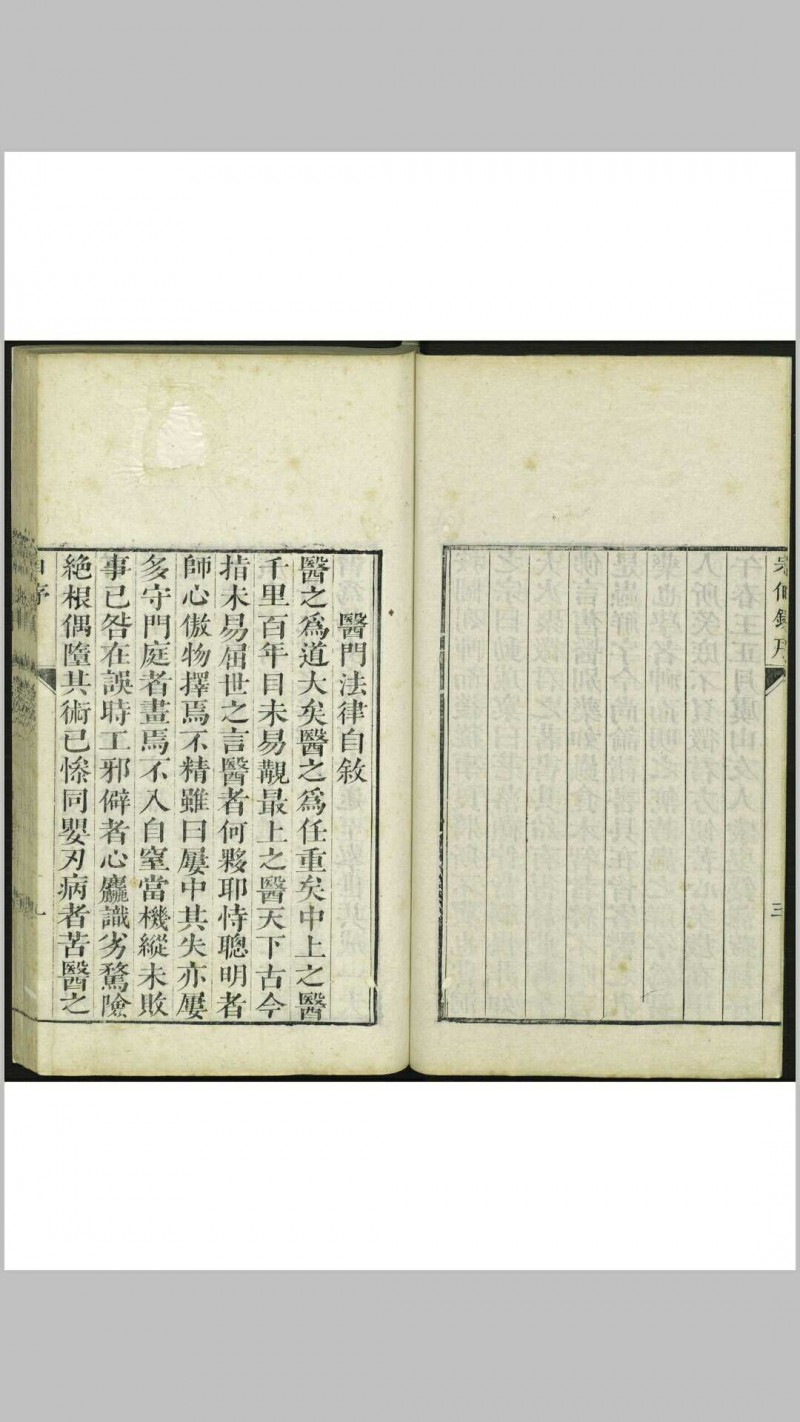 三
醫門法律自敘
醫之爲道大矣醫之爲任重矣中上之醫
千里百年目未易覯最上之醫天下古今
指未易屈世之言醫者何夥耶恃聰明者
師心傲物擇焉不精雖曰屢中其失亦屢
多守門庭者畫焉不入自窒當機縱未敗
事已咎在誤時工邪僻者心麤識劣騖險
絶根偶墮其術已慘同嬰刃病者苦醫之